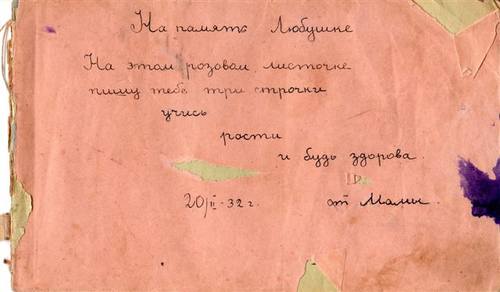 На память Любушке
На этом розовом листочке
пишу тебе три строчки
учись
рости
и будь здорова.
20/II-32 г. от Мамы.